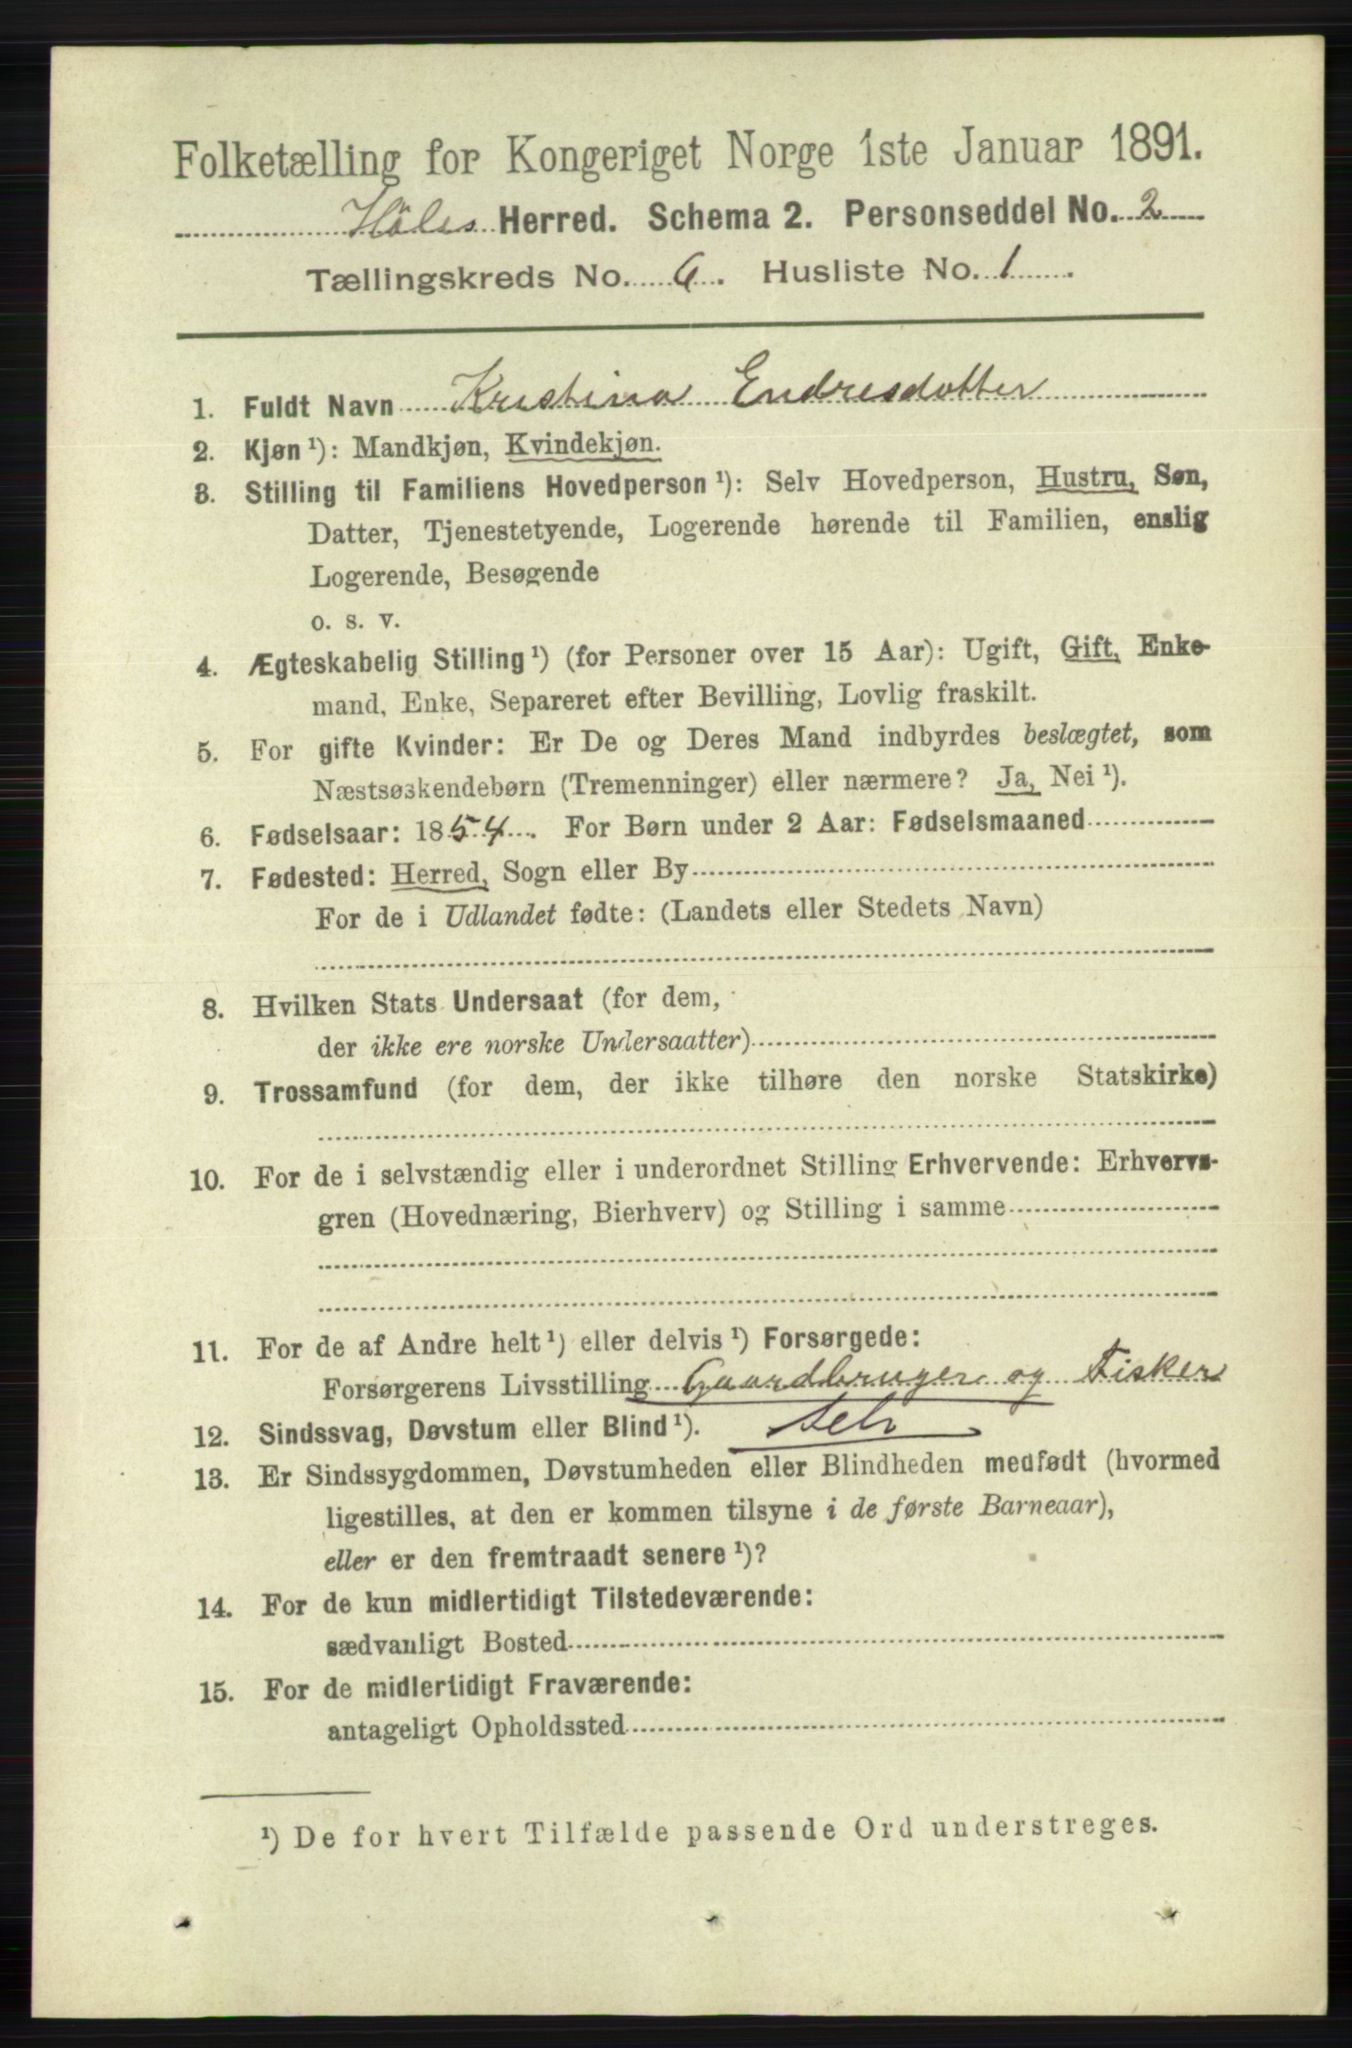 Folketælling for Kongeriget Norge 1ste Januar 1891.
Høles Herred. Schema 2. Personseddel No. 2
Tællingskreds No. 6. Husliste No. 1.
1. Fuldt Navn Kristina Endresdotter
2. Kjøn ¹): Mandkjøn, Kvindekjøn.
3. Stilling til Familiens Hovedperson ¹): Selv Hovedperson, Hustru, Søn,
Datter, Tjenestetyende, Logerende hørende til Familien, enslig
Logerende, Besøgende
o. s. v.
4. Ægteskabelig Stilling ¹) (for Personer over 15 Aar): Ugift, Gift, Enke-
mand, Enke, Separeret efter Bevilling, Lovlig fraskilt.
5. For gifte Kvinder: Er De og Deres Mand indbyrdes beslægtet, som
Næstsøskendebørn (Tremenninger) eller nærmere? Ja, Nei ¹).
6. Fødselsaar: 1854. For Børn under 2 Aar: Fødselsmaaned
7. Fødested: Herred, Sogn eller By
For de i Udlandet fødte: (Landets eller Stedets Navn)
8. Hvilken Stats Undersaat (for dem,
der ikke ere norske Undersaatter)
9. Trossamfund (for dem, der ikke tilhøre den norske Statskirke)
10. For de i selvstændig eller i underordnet Stilling Erhvervende: Erhvervs-
gren (Hovednæring, Bierhverv) og Stilling i samme
11. For de af Andre helt ¹) eller delvis ¹) Forsørgede:
Forsørgerens Livsstilling Gaardbruger og Fisker
12. Sindssvag, Døvstum eller Blind ¹). Selv
13. Er Sindssygdommen, Døvstumheden eller Blindheden medfødt (hvormed
ligestilles, at den er kommen tilsyne i de første Barneaar),
eller er den fremtraadt senere ¹)?
14. For de kun midlertidigt Tilstedeværende:
sædvanligt Bosted
15. For de midlertidigt Fraværende:
antageligt Opholdssted
¹) De for hvert Tilfælde passende Ord understreges.